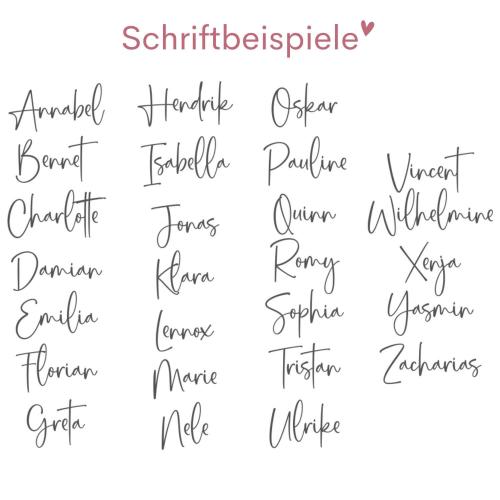 Schriftbeispiele
Annabel
Bennet
Charlotte
Damian
Emilia
Florian
Greta
Hendrik
Isabella
Jonas
Klara
Lennox
Marie
Nele
Oskar
Pauline
Quinn
Romy
Sophia
Tristan
Ulrike
Vincent
Wilhelmine
Xenja
Yasmin
Zacharias